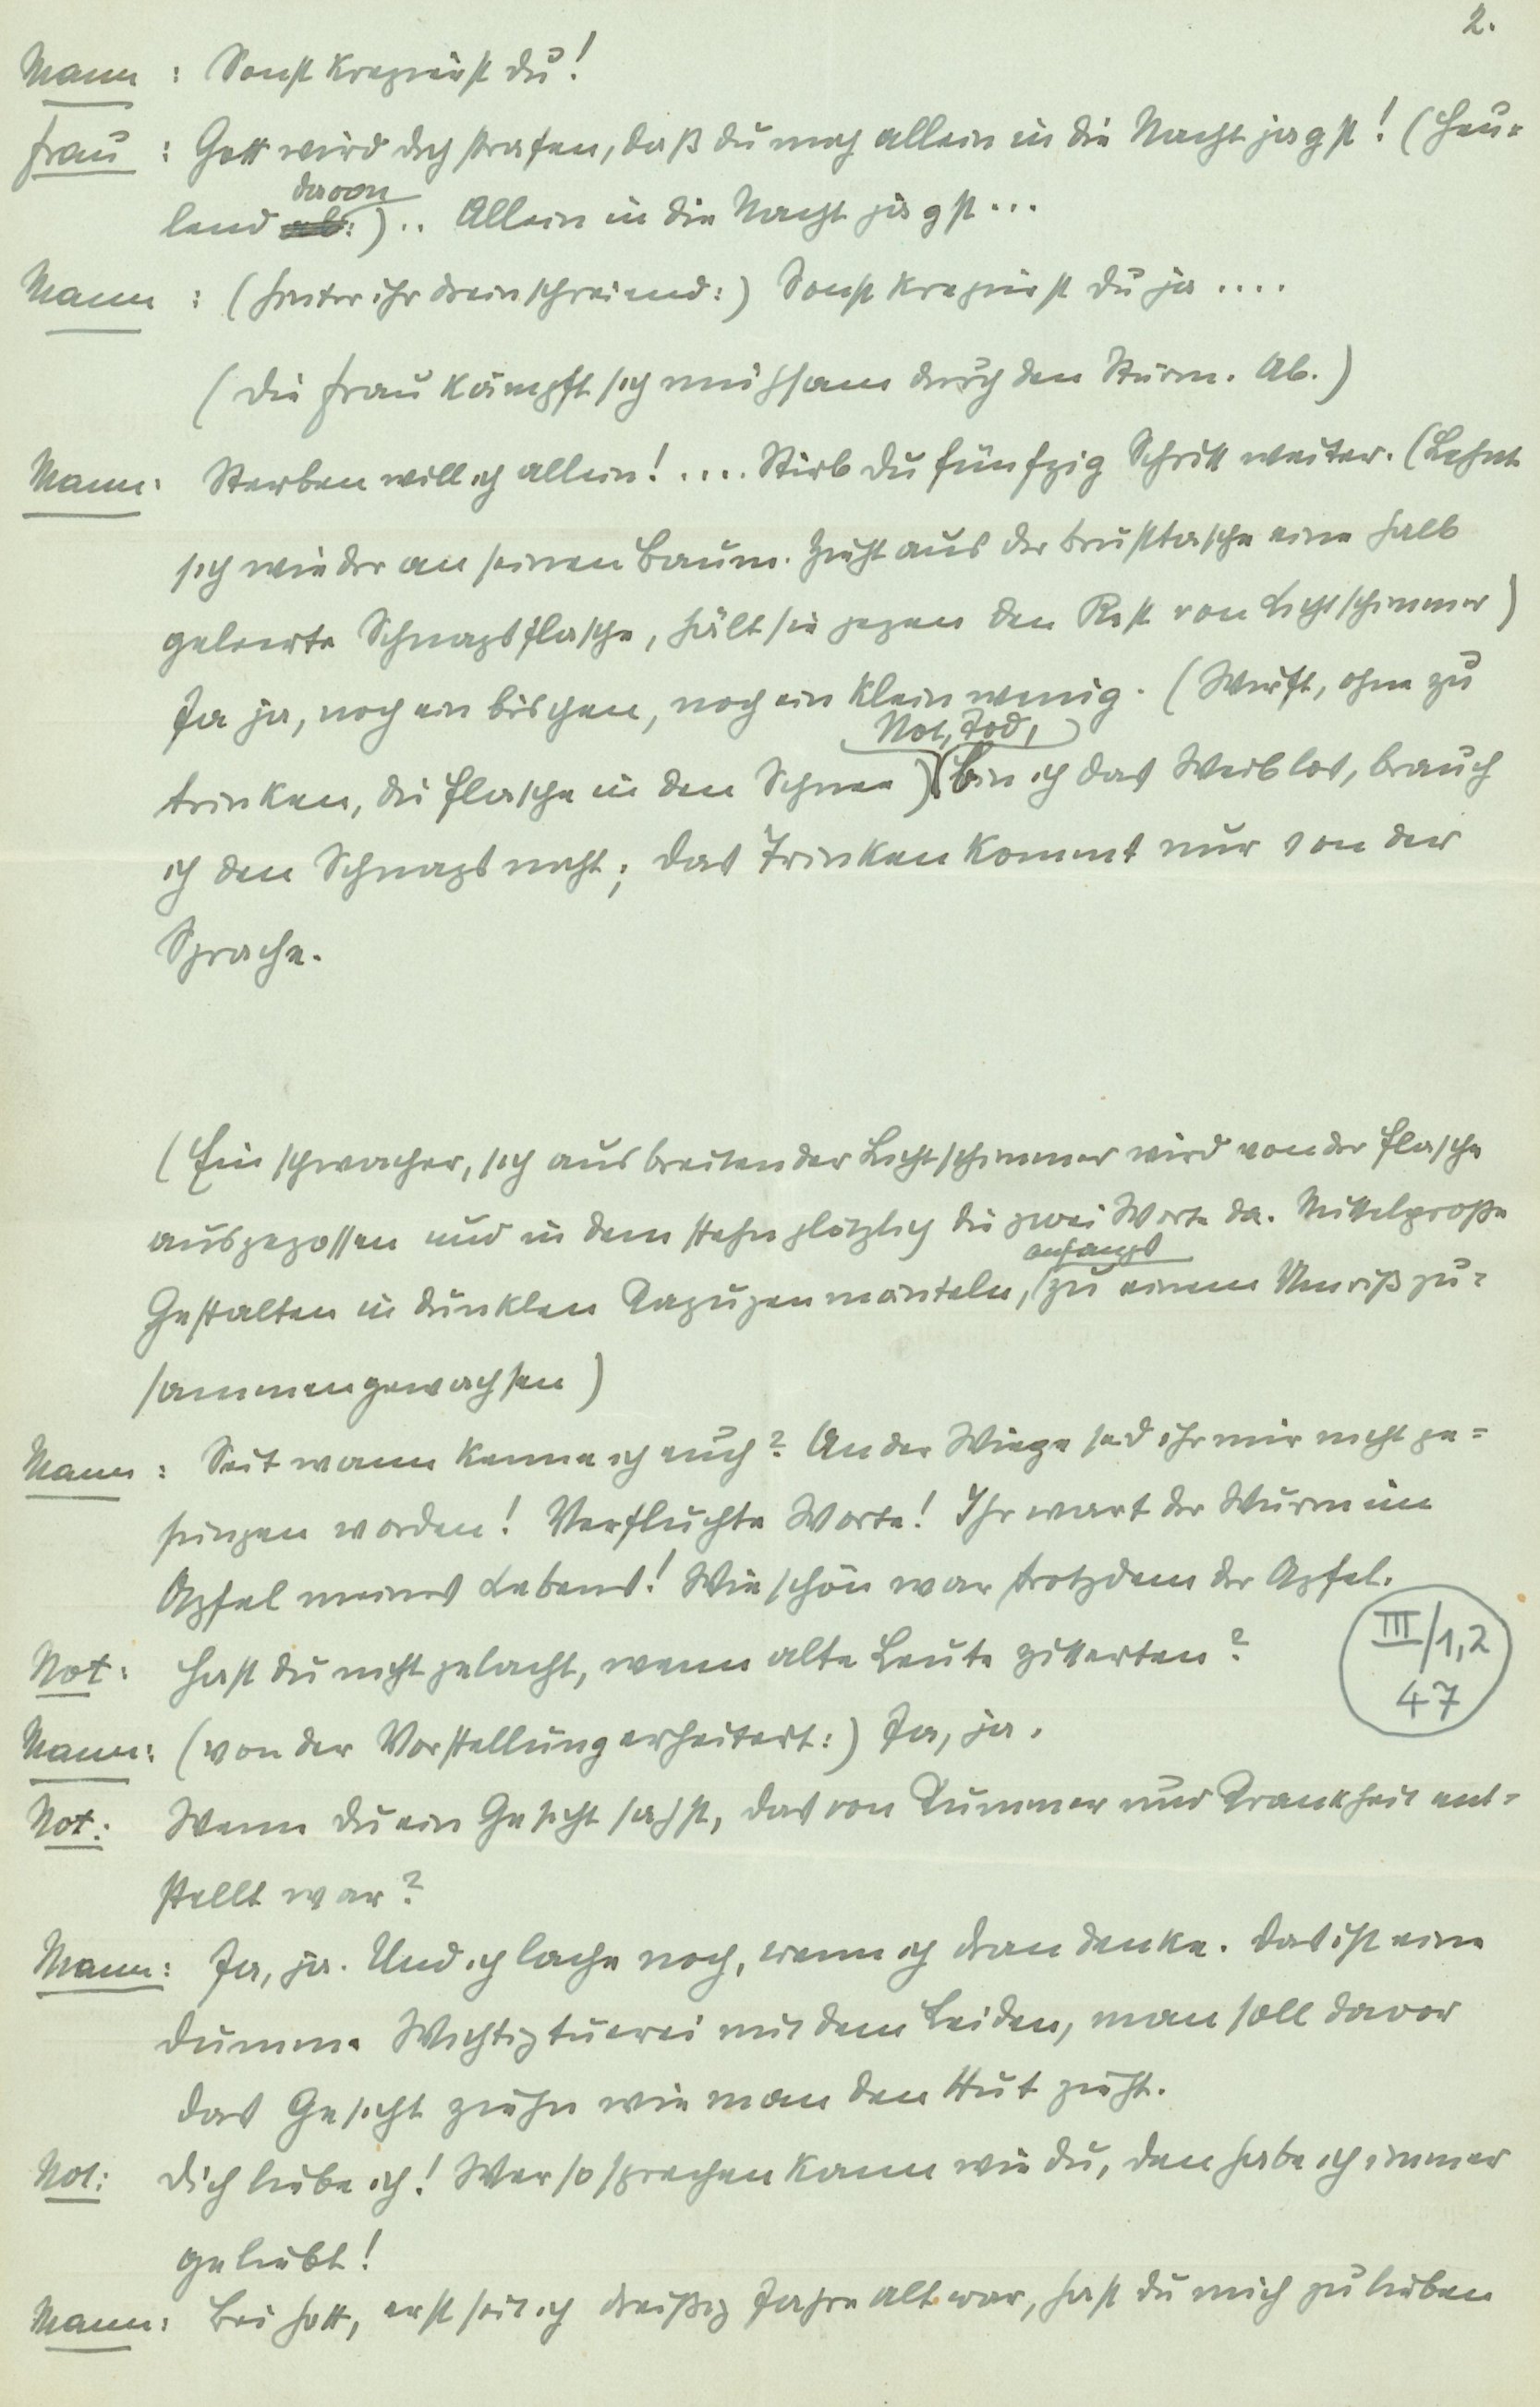 2.
Mann : Sonst krepierst du!
Frau : Gott wird dich strafen, daß du mich allein in die Nacht jagst! (Heu-
davon
lend ab:) .. Allein in die Nacht jagst...
Mann : (hinter ihr dreinschreiend:) Sonst krepierst du ja ....
(Die Frau kämpft sich mühsam durch den Sturm. Ab.)
Mann: Sterben will ich allein! .... Stirb du fünfzig Schritt weiter. (Lehnt
sich wieder an seinen Baum. Zieht aus der Brusttasche eine halb
geleerte Schnapsflasche, hält sie gegen den Rest von Lichtschimmer)
Ja ja, noch ein bischen, noch ein klein wenig. (Wirft, ohne zu
Not, Tod,
trinken, die Flasche in den Schnee) bin ich das Weib los, brauch
ich den Schnaps nicht; das Trinken kommt nur von der
Sprache.
(Ein schwacher, sich ausbreitender Lichtschimmer wird von der Flasche
ausgegossen und in dem stehn plötzlich die zwei Worte da. Mittelgroße
anfangs
Gestalten in dunklen Kapuzenmänteln, zu einem Umriß zu-
sammengewachsen)
Mann : Seit wann kenne ich euch? An der Wiege seid ihr mir nicht ge-
sungen worden! Verfluchte Worte! Ihr wart der Wurm im
Apfel meines Lebens! Wie schön war trotzdem der Apfel.
Not: Hast du nicht gelacht, wenn alte Leute zitterten?
III/1,2
47
Mann: (von der Vorstellung erheitert:) Ja, ja.
Not: Wenn du ein Gesicht sahst, das von Kummer und Krankheit ent-
stellt war?
Mann: Ja, ja. Und ich lache noch, wenn ich dran denke. Das ist eine
dumme Wichtigtuerei mit dem Leiden, man soll davor
das Gesicht ziehn wie man den Hut zieht.
Not: Dich liebe ich! Wer so sprechen kann wie du, den habe ich immer
geliebt!
Mann: Bei Gott, erst seit ich dreißig Jahre alt war, hast du mich zu lieben